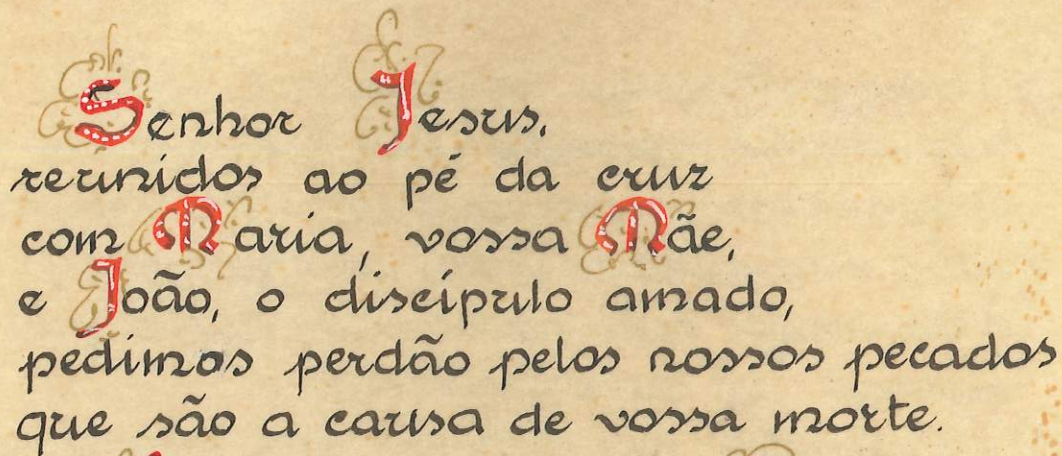 Senhor Jesus,
reunidos ao pé da cruz
com Maria, vossa Mãe,
e João, o discípulo amado,
pedimos perdão pelos nossos pecados
que são a causa de vossa morte.